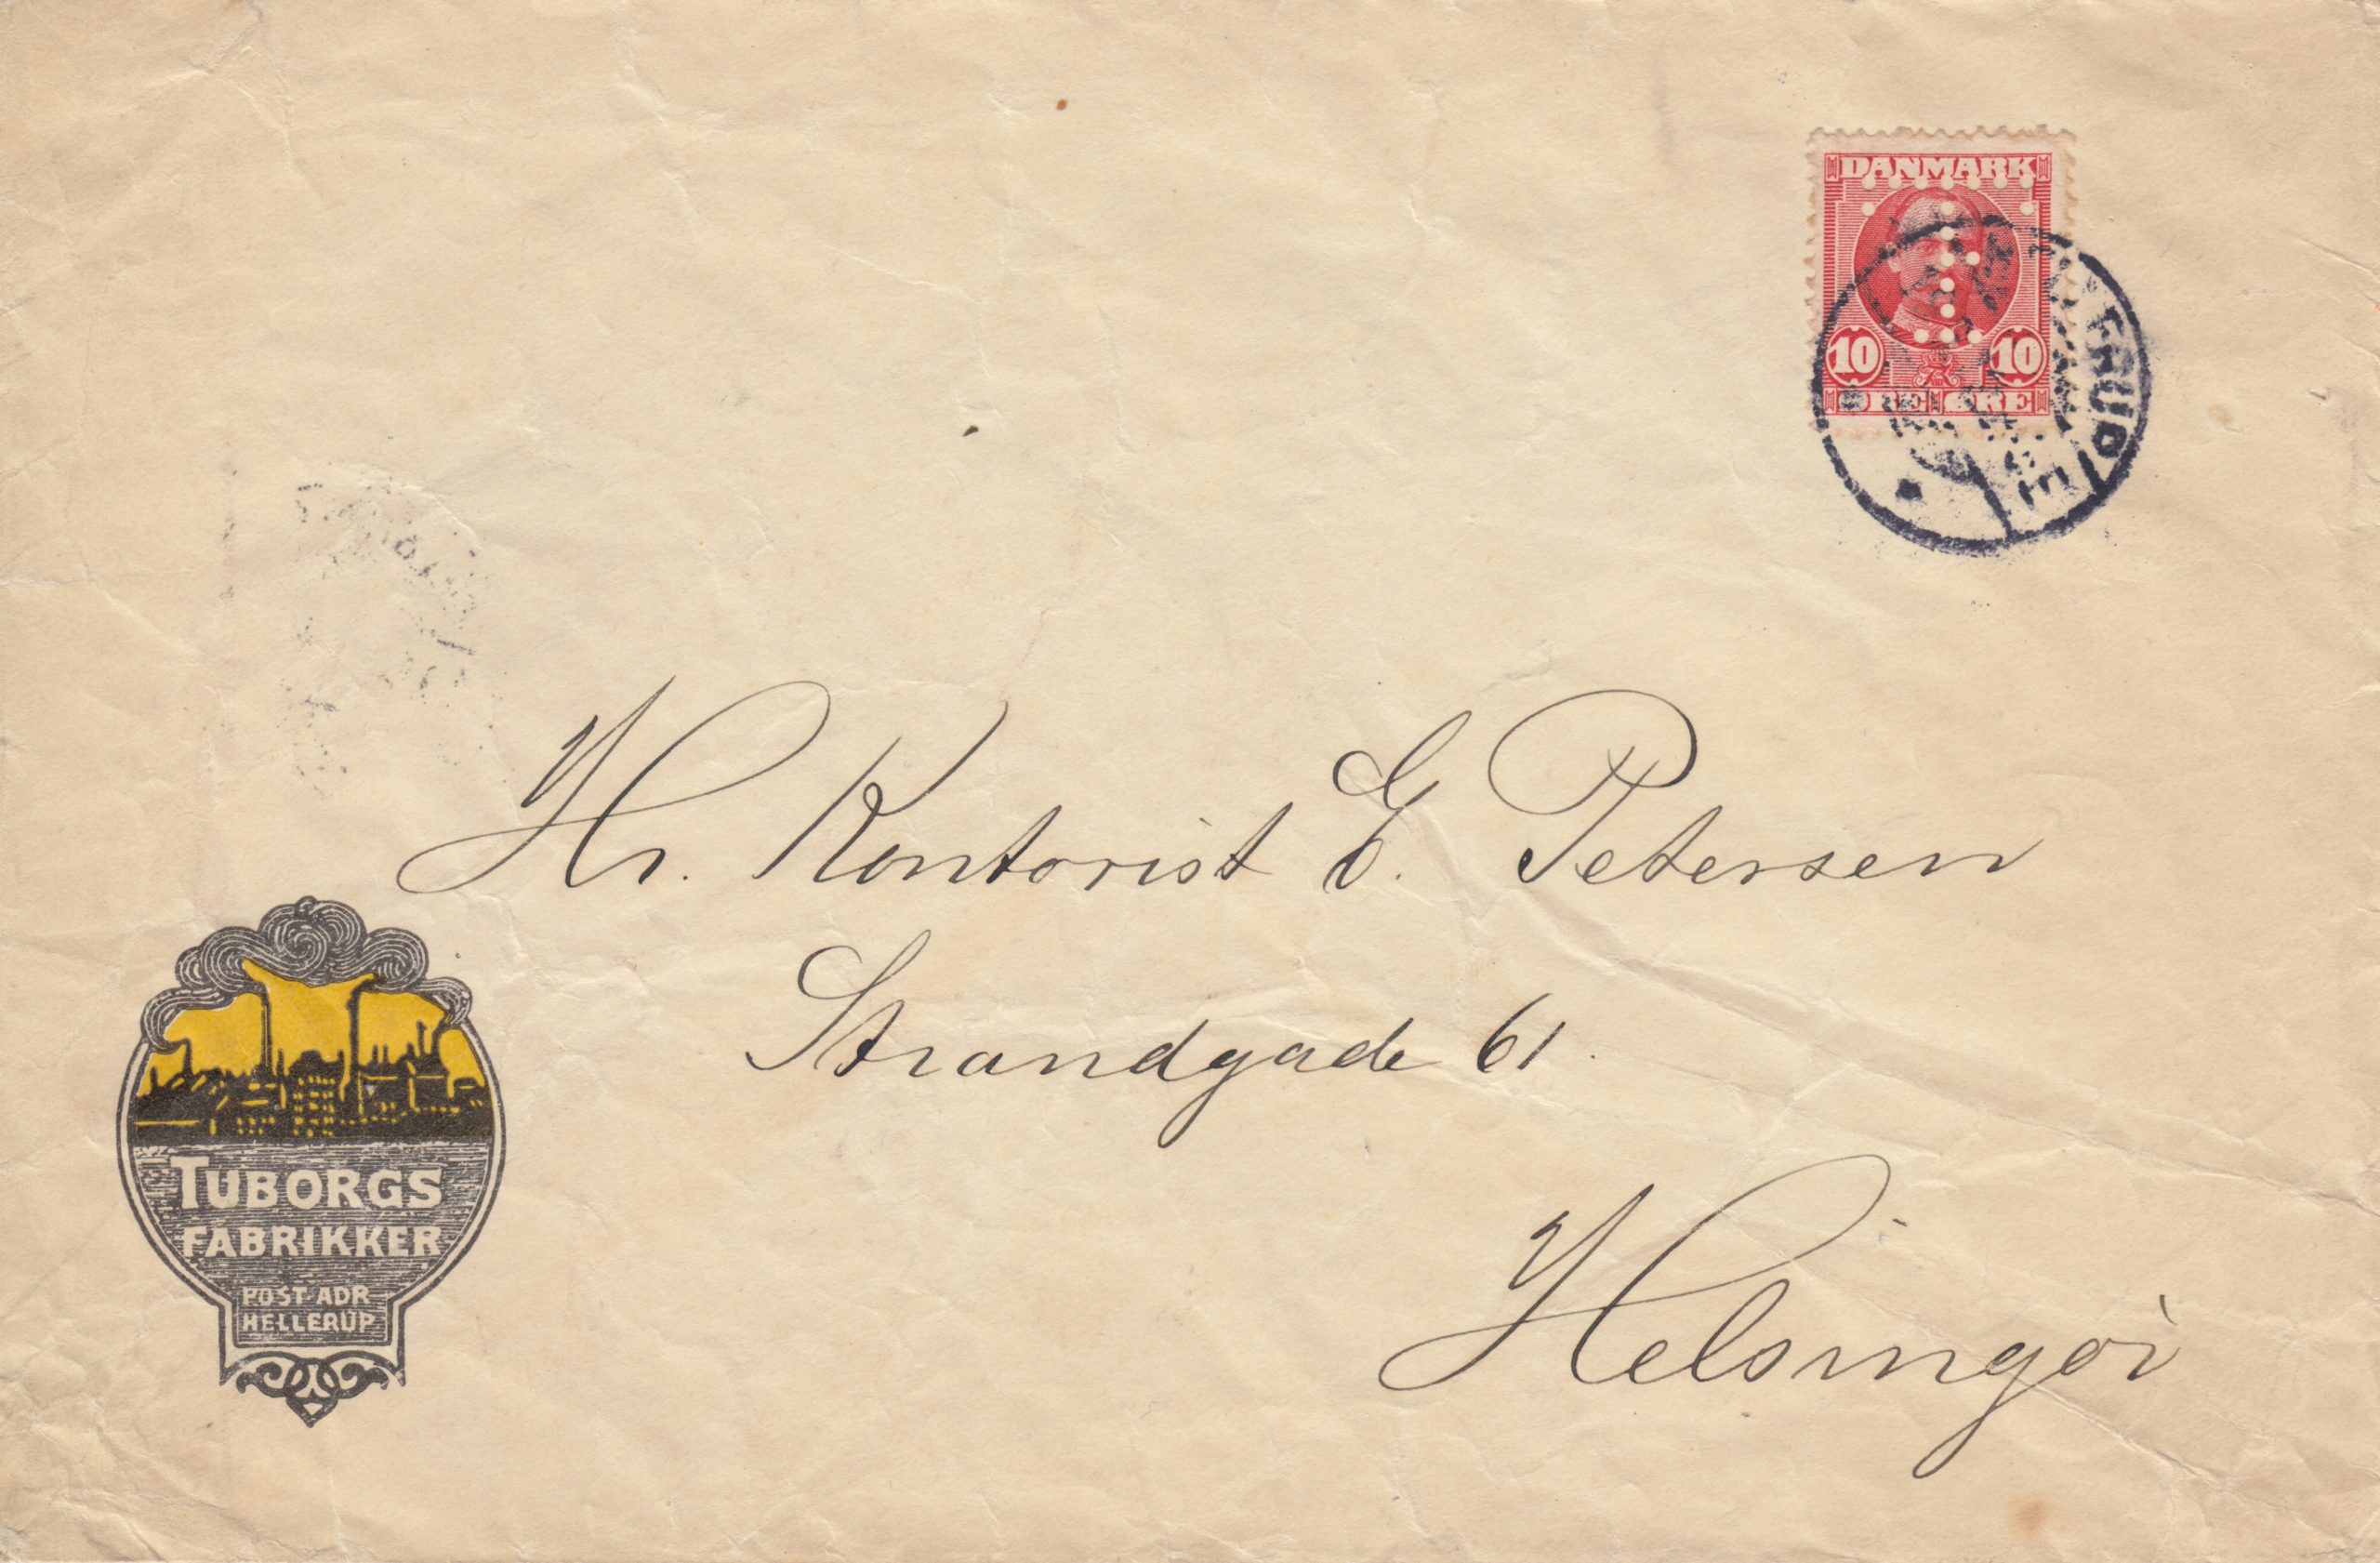 DANMARK
10 10
ØRE ØRE
Hr. Kontorist E. Petersen
Strandgade 61.
Helsingör
TUBORGS
FABRIKKER
POST-ADR
HELLERUP